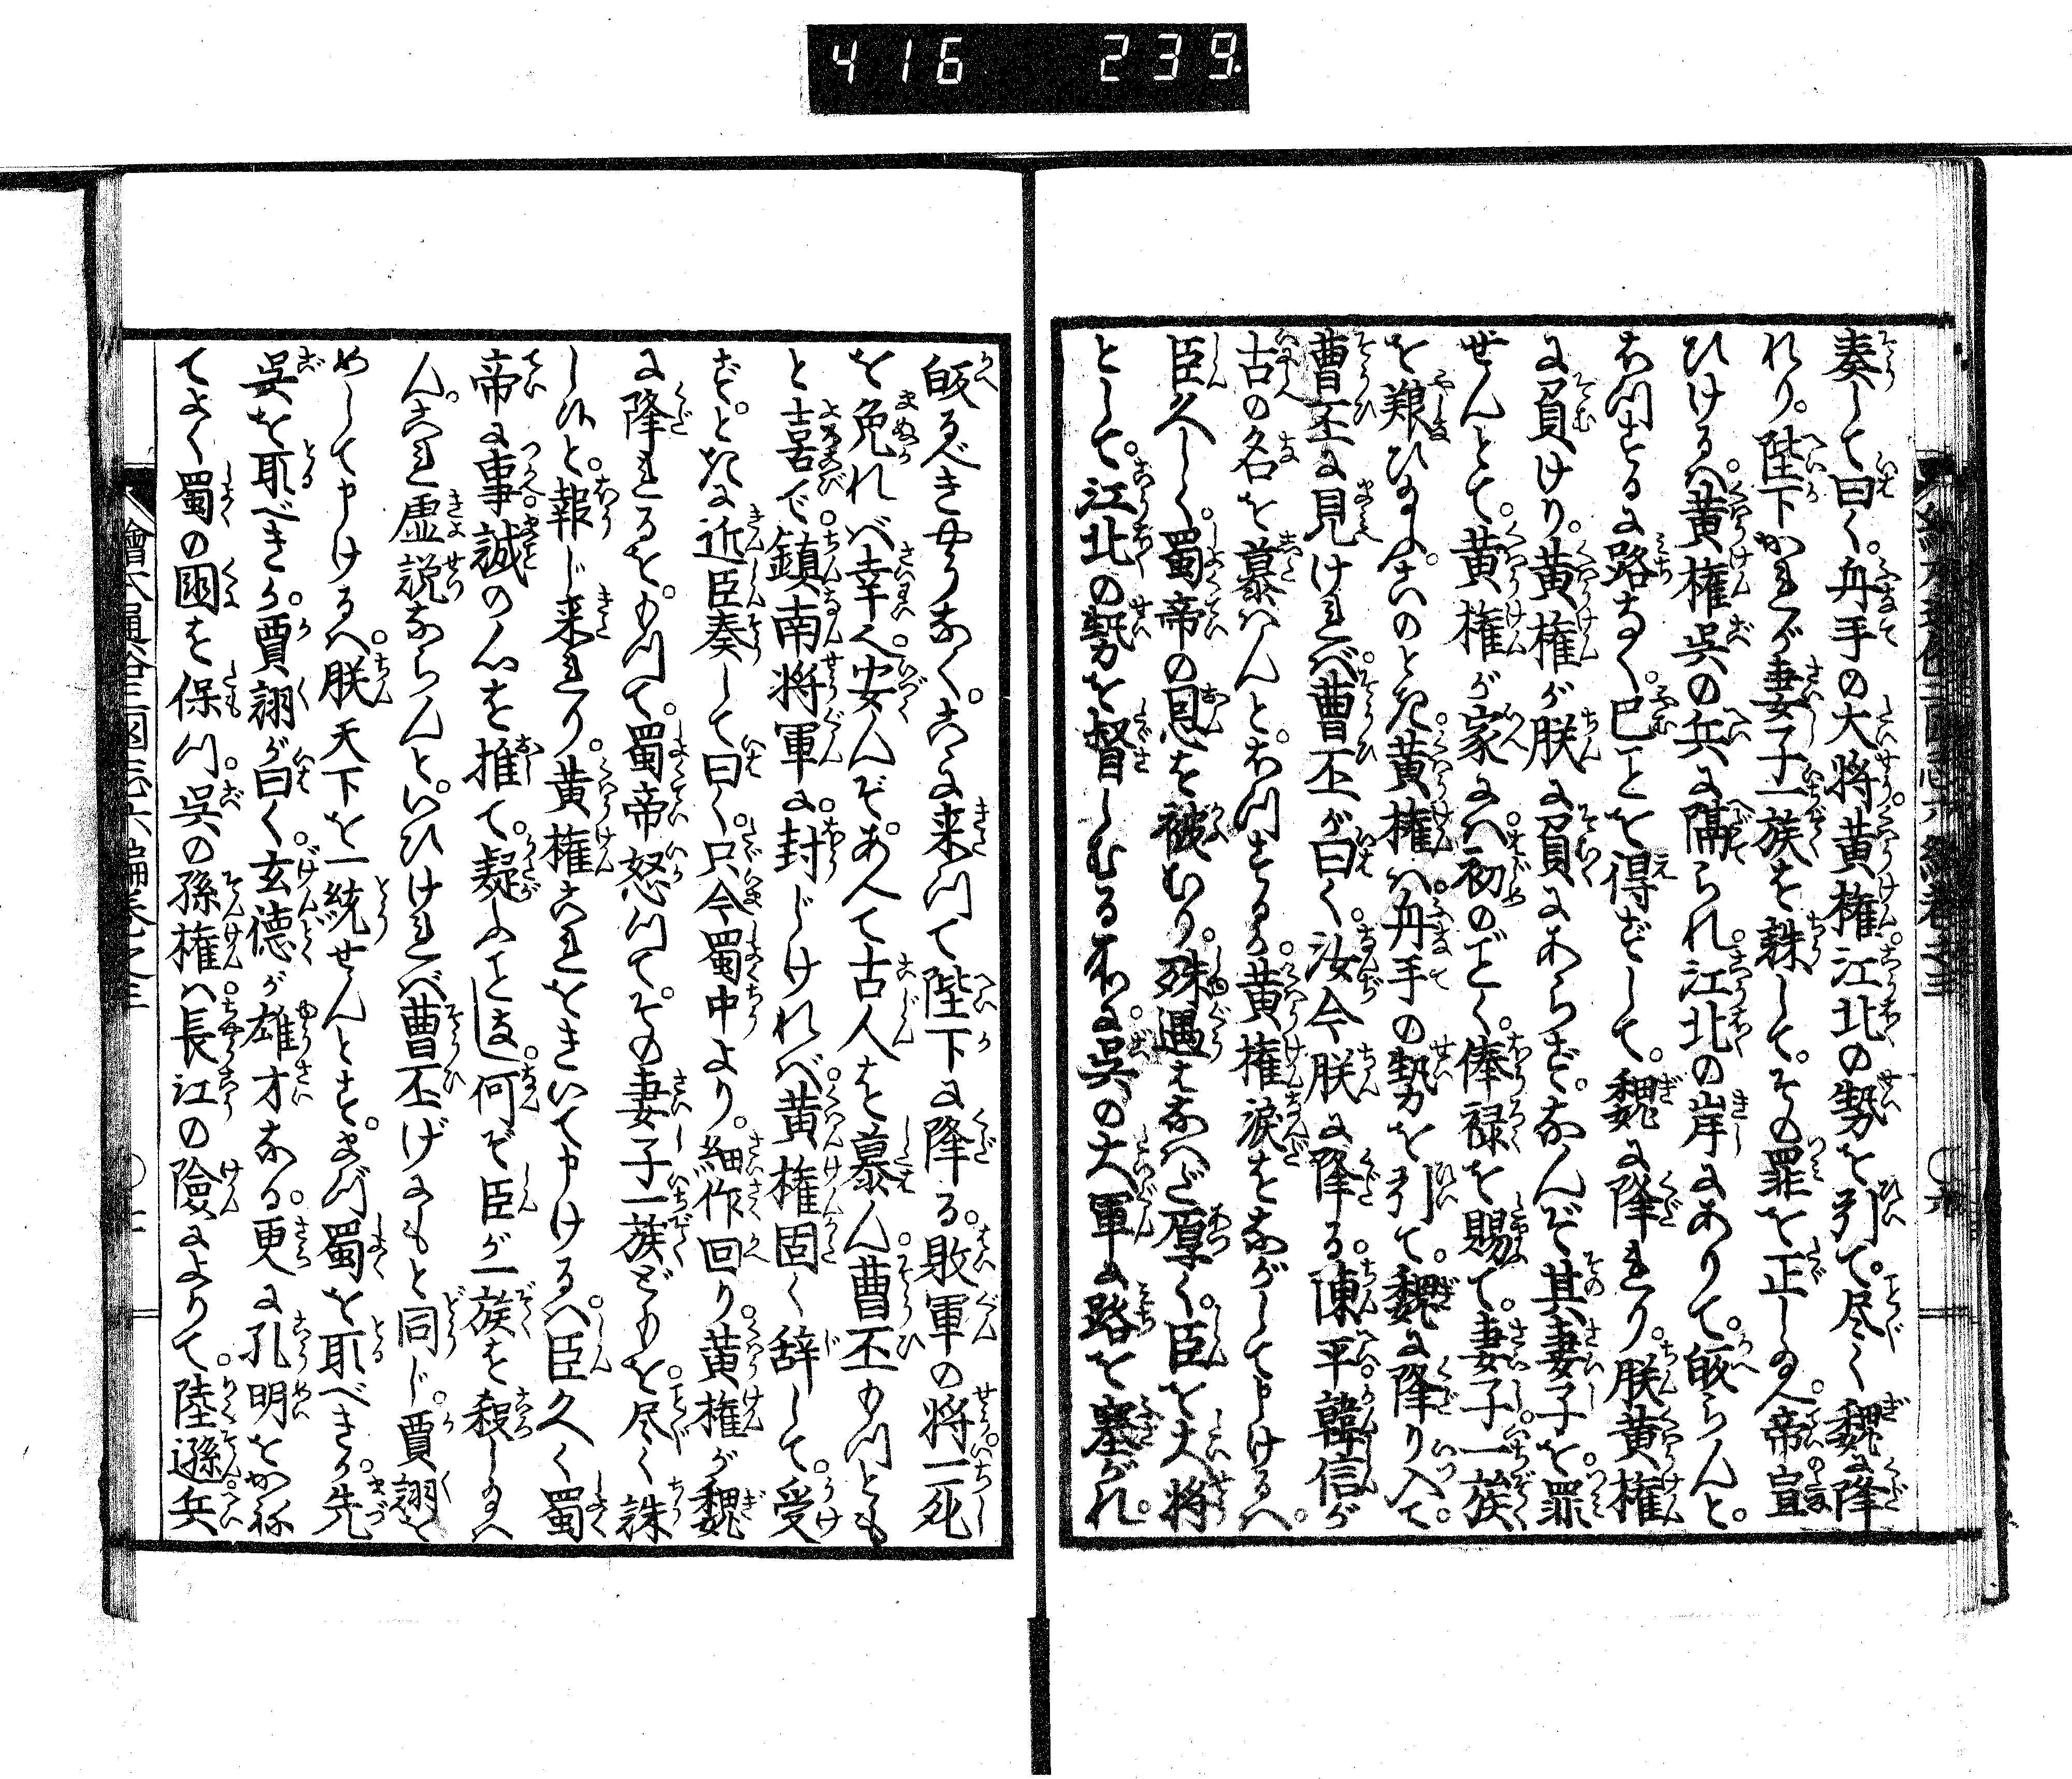 416 239
奏して曰く。舟手の大将黄権江北の勢を引て。尽く魏に降
れり。陛下かれが妻子一族を誅して。その罪を正し給へ。帝宣
ひけるハ。黄権呉の兵に隔られ。江北の岸にありて。皈らんと。
おつするに路なく。已ことを得ずして。魏に降れり。朕黄権
に負けり。黄権が朕に負にあらず。なんぞ其妻子を罪
せんとて。黄権が家にハ。初のごとく。俸禄を賜て。妻子一族
を養ひ給ふ。このとき黄権ハ。舟手の勢を引て。魏に降り入て。
曹丕に見けれバ。曹丕が曰く。汝今朕に降る。陳平韓信が
古の名を慕ハんとおつするか。黄権涙をながして申けるハ。
臣久しく。蜀帝の恩を被むり。殊遇はなハだ厚く。臣を大将
として。江北の勢を督しむるゆへに。呉の大軍に路を塞がれ。
皈るべきやうなく。こゝに来つて陛下に降る。敗軍の将一死
を免れバ幸ハ。安んぞあへて古人を慕ん。曹丕もつとも
と喜で。鎮南将軍に封じけれバ。黄権固く辞して。受
ず。ときに近臣奏して曰く。只今蜀中より。細作回り。黄権が魏
に降れるを。もつて。蜀帝怒つて。その妻子一族どもを。尽く誅
しぬと。報じ来れり。黄権これをきいて申けるハ。臣久く蜀
帝に事。誠の心を推て。疑ふことなし。何ぞ臣が一族を殺し給ハ
ん。これ虚説ならんと。いひけれバ曹丕げにもと同じ。賈詡を
めして申けるハ。朕天下を一統せんとす。まづ蜀を取べきか。先
呉を取べきか。賈詡が曰く。玄徳が雄才なる。更に孔明をかね
てよく蜀の国を保つ。呉の孫権ハ。長江の険によりて。陸遜兵
繪本通俗三国志六編巻之三